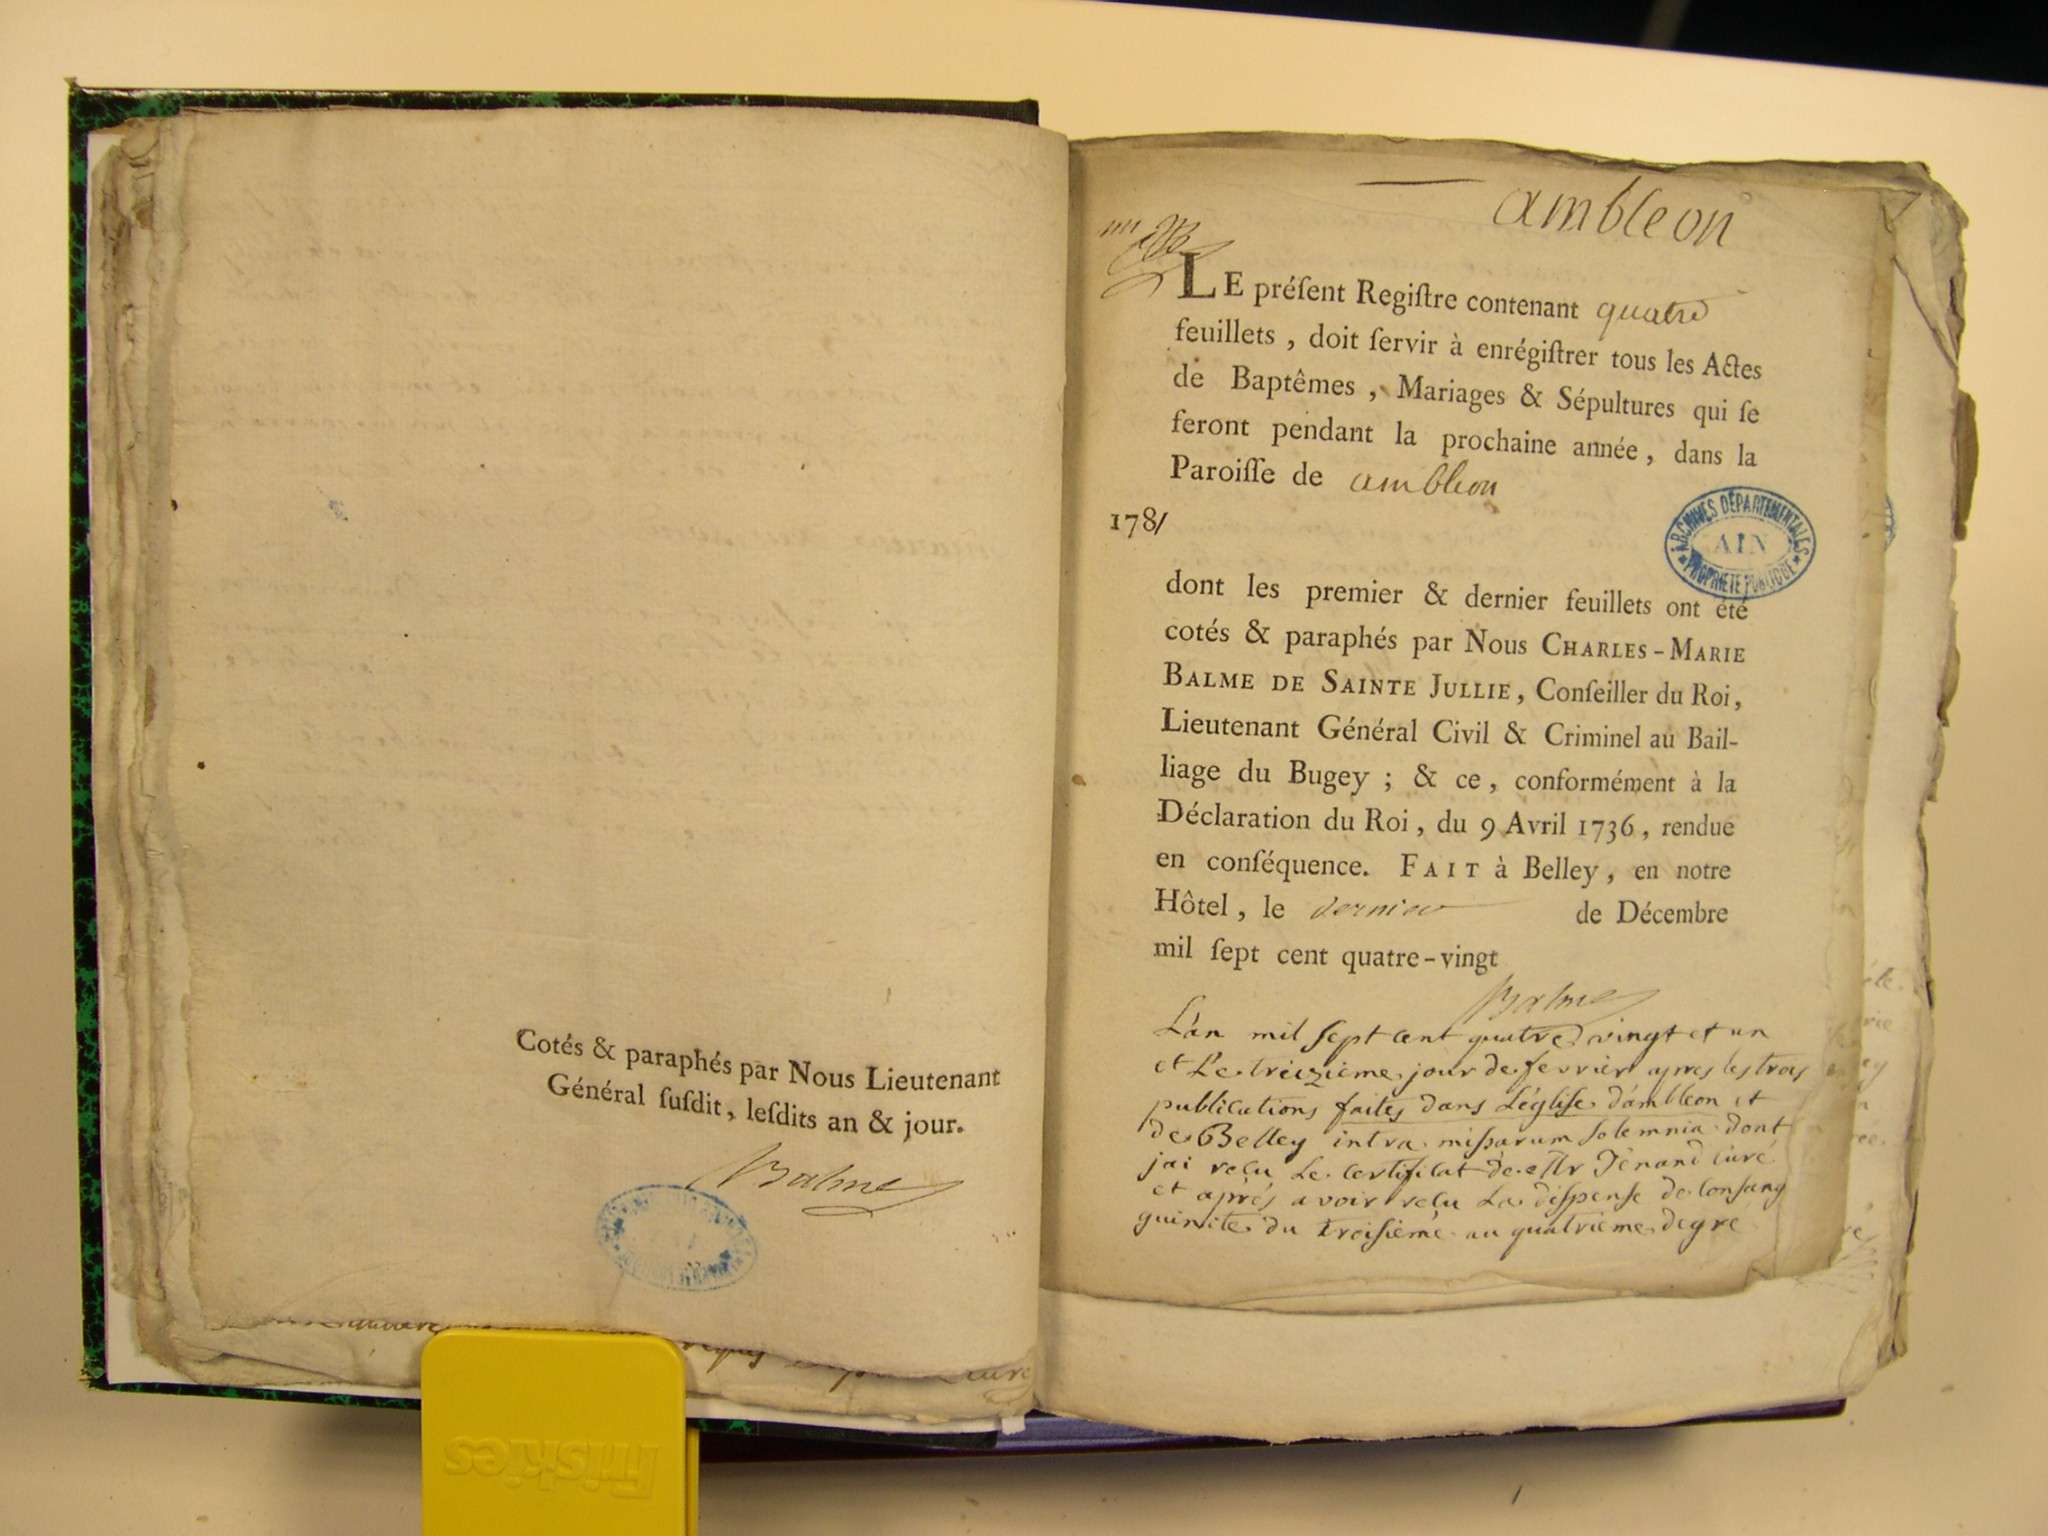 Cotés & paraphés par Nous Lieutenant
Général ſuſdit, leſdits an & jour.
Balme
ambleon
LE préſent Regiſtre contenant quatre
feuillets, doit ſervir à enrégiſtrer tous les Actes
de Baptêmes, Mariages & Sépultures qui ſe
feront pendant la prochaine année, dans la
Paroiſſe de ambleon
1781
ARCHIVES DÉPARTEMENTALES
AIN
PROPRIÉTÉ PUBLIQUE
dont les premier & dernier feuillets ont été
cotés & paraphés par Nous CHARLES-MARIE
BALME DE SAINTE JULLIE, Conſeiller du Roi,
Lieutenant Général Civil & Criminel au Bail-
liage du Bugey ; & ce, conformément à la
Déclaration du Roi, du 9 Avril 1736, rendue
en conſéquence. FAIT à Belley, en notre
Hôtel, le dernier de Décembre
mil ſept cent quatre-vingt
Balme
L'an mil sept cent quatre vingt et un
et Le treizieme jour de fevrier apres les trois
publications faites dans L'église d'ambleon et
de Belley intra missarum solemnia dont
jai reçu Le certificat de Mr Jenand curé
et après avoir reçu La dispense de consang
guinite du troisième au quatrieme degre
Friskies